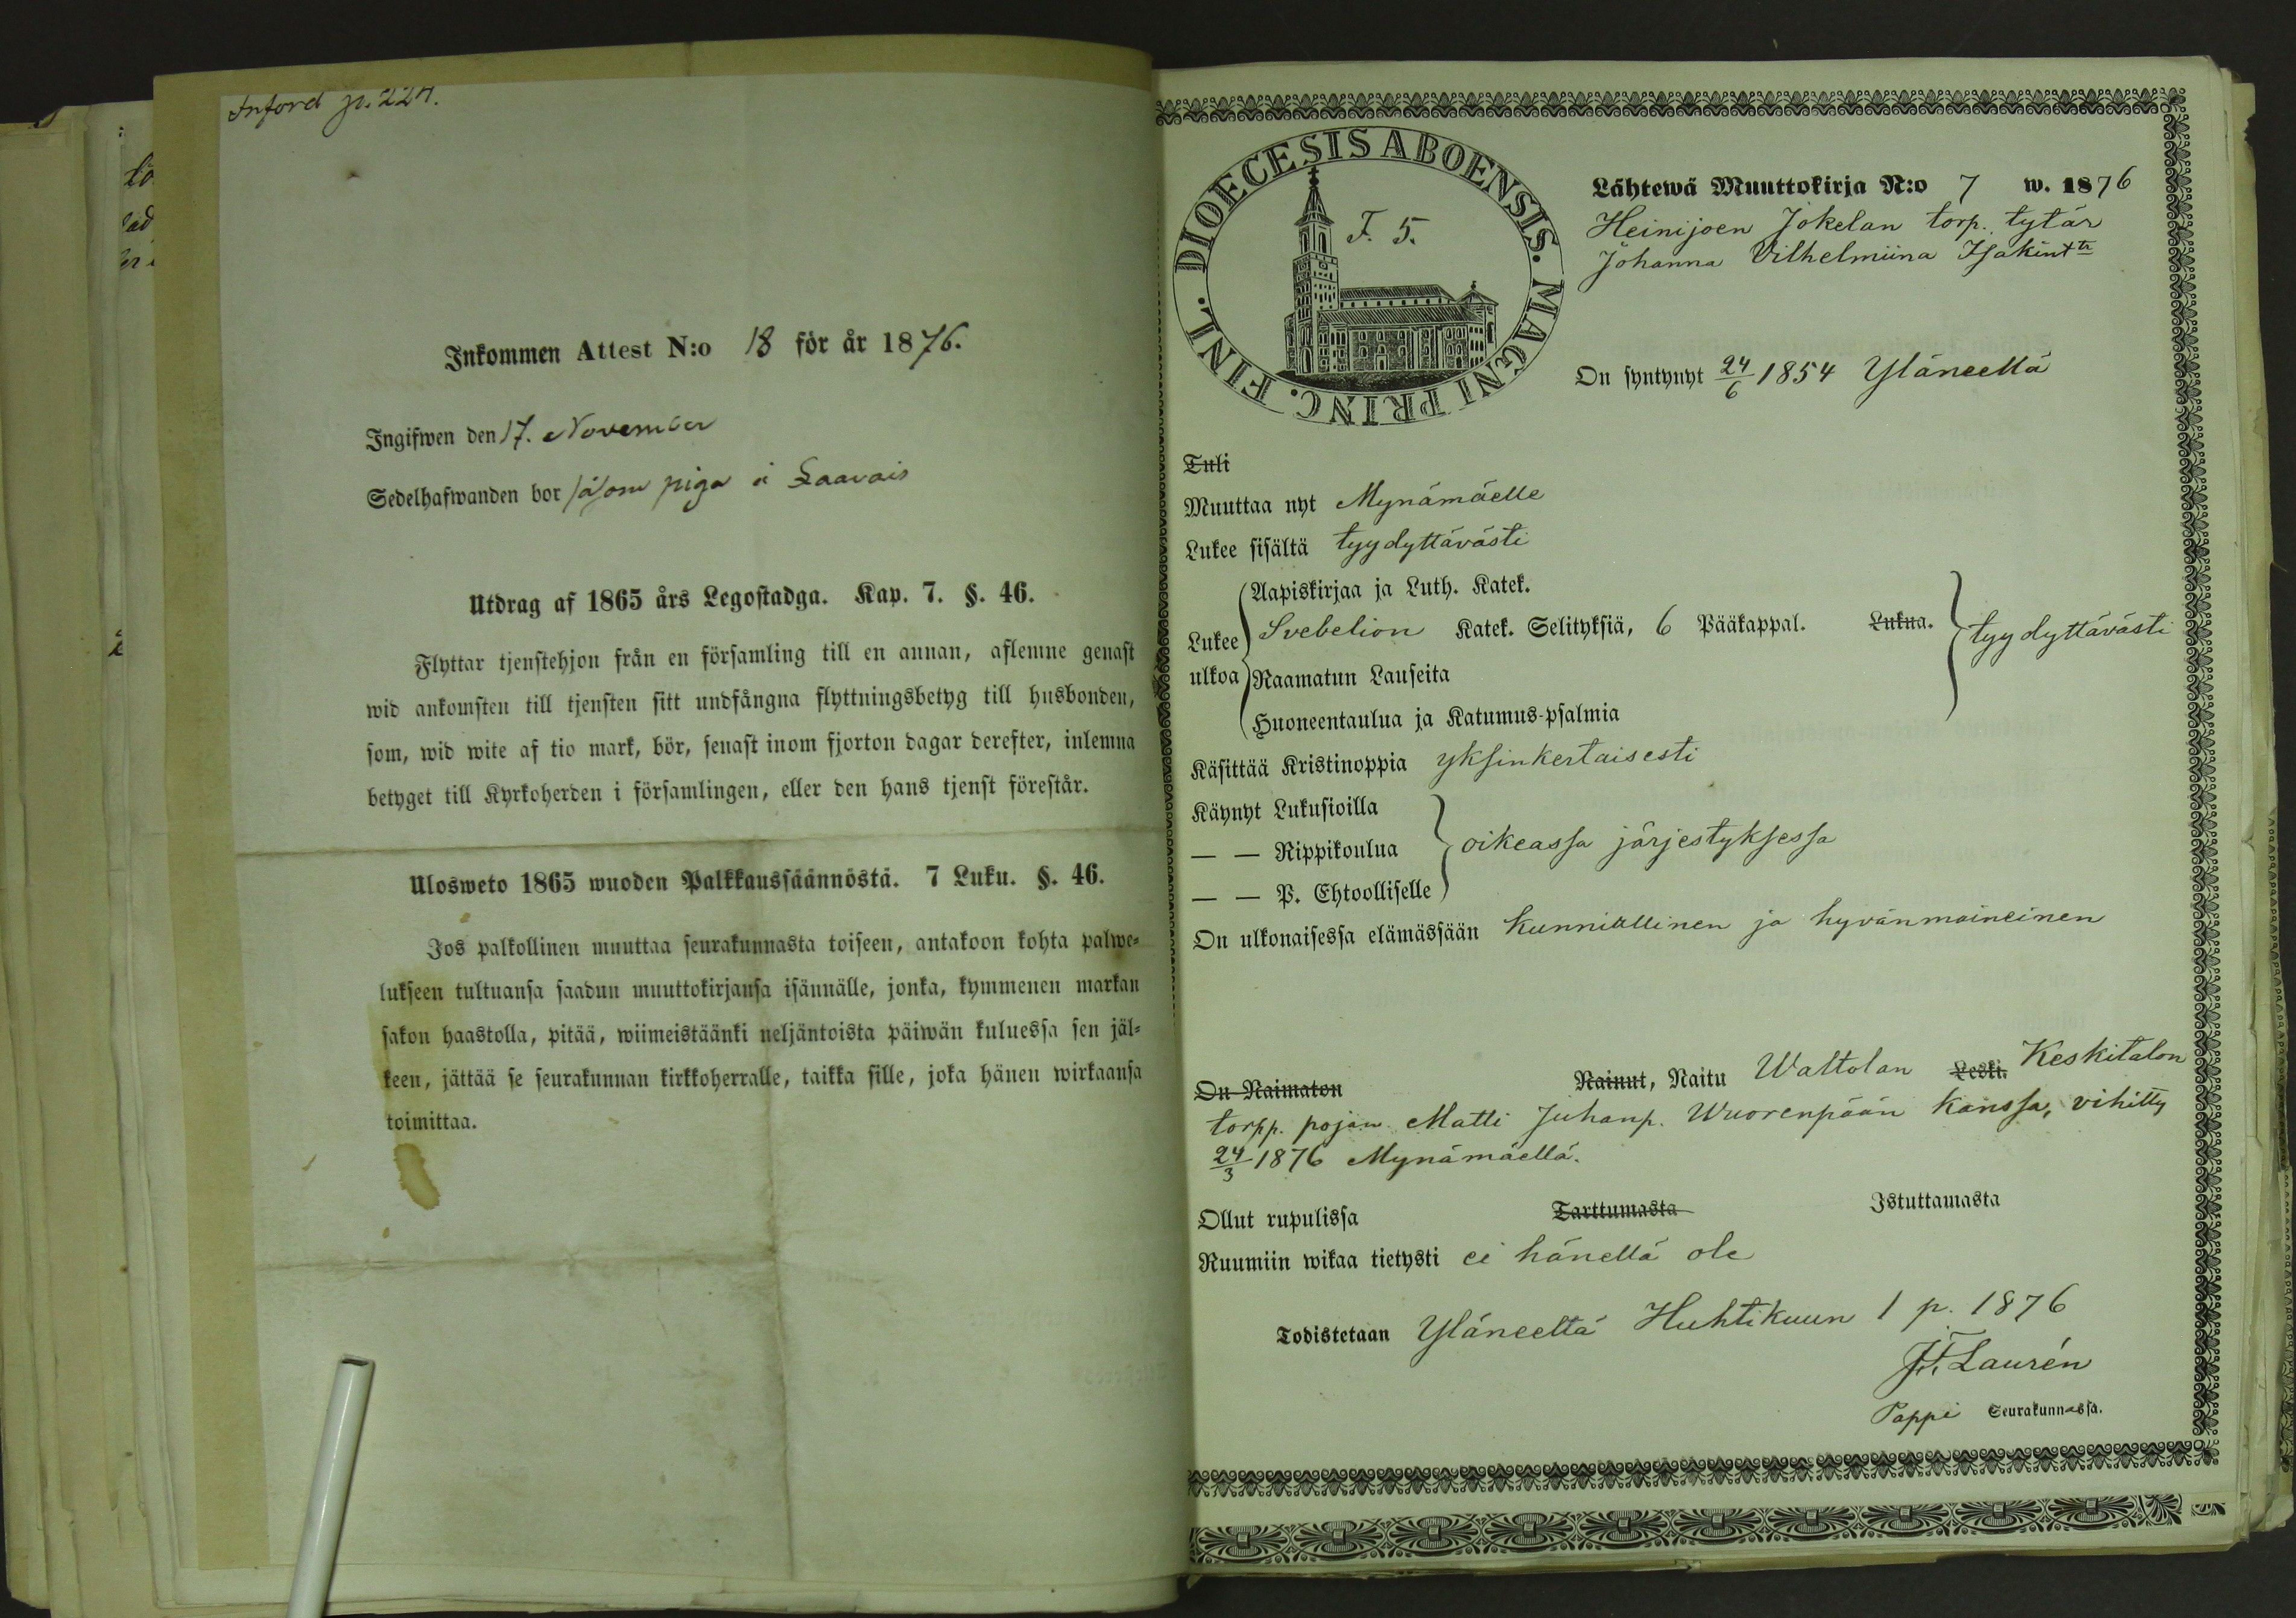 Införd p. 224.
Inkommen Attest N:o 18 för år 1876.
Ingifwen den 17. November
Sedelhafwanden bor såsom piga i Laavais
Utdrag af 1865 års Legostadga. Kap. 7. §. 46.
Flyttar tjenstehjon från en församling till en annan, aflemne genast
wid ankomsten till tjensten sitt undfångna flyttningsbetyg till husbonden,
som, wid wite af tio mark, bör, senast inom fjorton dagar derefter, inlemna
betyget till Kyrkoherden i församlingen, eller den hans tjenst förestår.
Ulosweto 1865 wuoden Palkkaussäännöstä. 7 Luku. §. 46.
Jos palkollinen muuttaa seurakunnasta toiseen, antakoon kohta palwe-
lukseen tultuansa saadun muuttokirjansa isännälle, jonka, kymmenen markan
sakon haastolla, pitää, wiimeistäänki neljäntoista päiwän kuluessa sen jäl-
keen, jättää se seurakunnan kirkkoherralle, taikka sille, joka hänen wirkaansa
toimittaa.
DIOECESIS ABOENSIS. MAGNI PRINC. FINL.
F. 5.
Lähtewä Muuttokirja N:o 7 w. 1876
Heinijoen Jokelan torp. tytär
Johanna Vilhelmiina Isakintr
On syntynyt 24/6 1854 Yläneellä
Tuli
Muuttaa nyt Mynämäelle
Lukee sisältä tyydyttävästi
Aapiskirjaa ja Luth. Katek.
Lukee Svebelion Katek. Selityksiä, 6 Pääkappal. Lukua. tyydyttävästi
ulkoa Raamatun Lauseita
Huoneentaulua ja Katumus-psalmia
Käsittää Kristinoppia yksinkertaisesti
Käynyt Lukusioilla
— — Rippikoulua oikeassa järjestyksessa
— — P. Ehtoolliselle
On ulkonaisessa elämässään kunniallinen ja hyvänmaineinen
On Naimaton Nainut, Naitu Waltolan Leski. Keskitalon
torpp. pojan Matti Juhanp. Wuorenpään kanssa, vihitty
24/3 1876 Mynämäellä.
Ollut rupulissa Tarttumasta Istuttamasta
Ruumiin wikaa tietysti ei hänellä ole
Todistetaan Yläneeltä Huhtikuun 1 p. 1876
Laurén
Pappi Seurakunnassa.